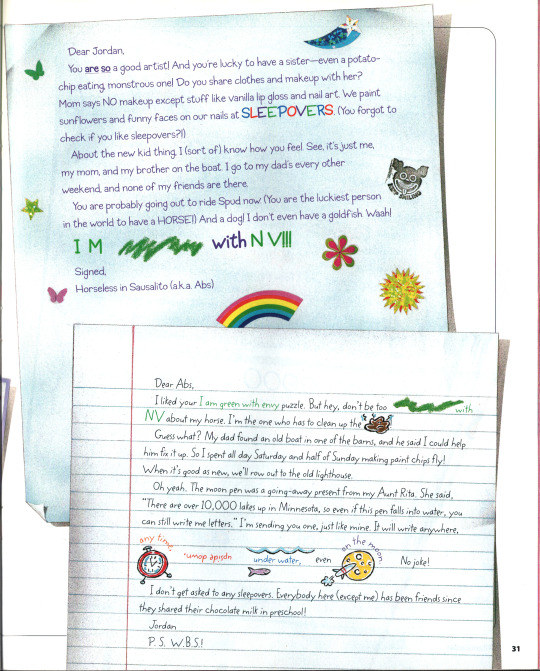 Dear Jordan,
You are so a good artist! And you're lucky to have a sister—even a potato-
chip eating, monstrous one! Do you share clothes and makeup with her?
Mom says NO makeup except stuff like vanilla lip gloss and nail art. We paint
sunflowers and funny faces on our nails at SLEEPOVERS. (You forgot to
check if you like sleepovers?!)
About the new kid thing, I (sort of) know how you feel. See, it's just me,
my mom, and my brother on the boat. I go to my dad's every other
weekend, and none of my friends are there.
You are probably going out to ride Spud now. (You are the luckiest person
in the world to have a HORSE!) And a dog! I don't even have a goldfish. Waah!
I M with N V!!!
Signed,
Horseless in Sausalito (a.k.a. Abs)
KEEP SMILING
Dear Abs,
I liked your I am green with envy puzzle. But hey, don't be too with
NV about my horse. I'm the one who has to clean up the
Guess what? My dad found an old boat in one of the barns, and he said I could help
him fix it up. So I spent all day Saturday and half of Sunday making paint chips fly!
When it's good as new, we'll row out to the old lighthouse.
Oh yeah. The moon pen was a going-away present from my Aunt Rita. She said,
"There are over 10,000 lakes up in Minnesota, so even if this pen falls into water, you
can still write me letters." I'm sending you one, just like mine. It will write anywhere,
any time, upside down, under water, even on the moon. No joke!
I don't get asked to any sleepovers. Everybody here (except me) has been friends since
they shared their chocolate milk in preschool!
Jordan
P.S. W.B.S.!
31